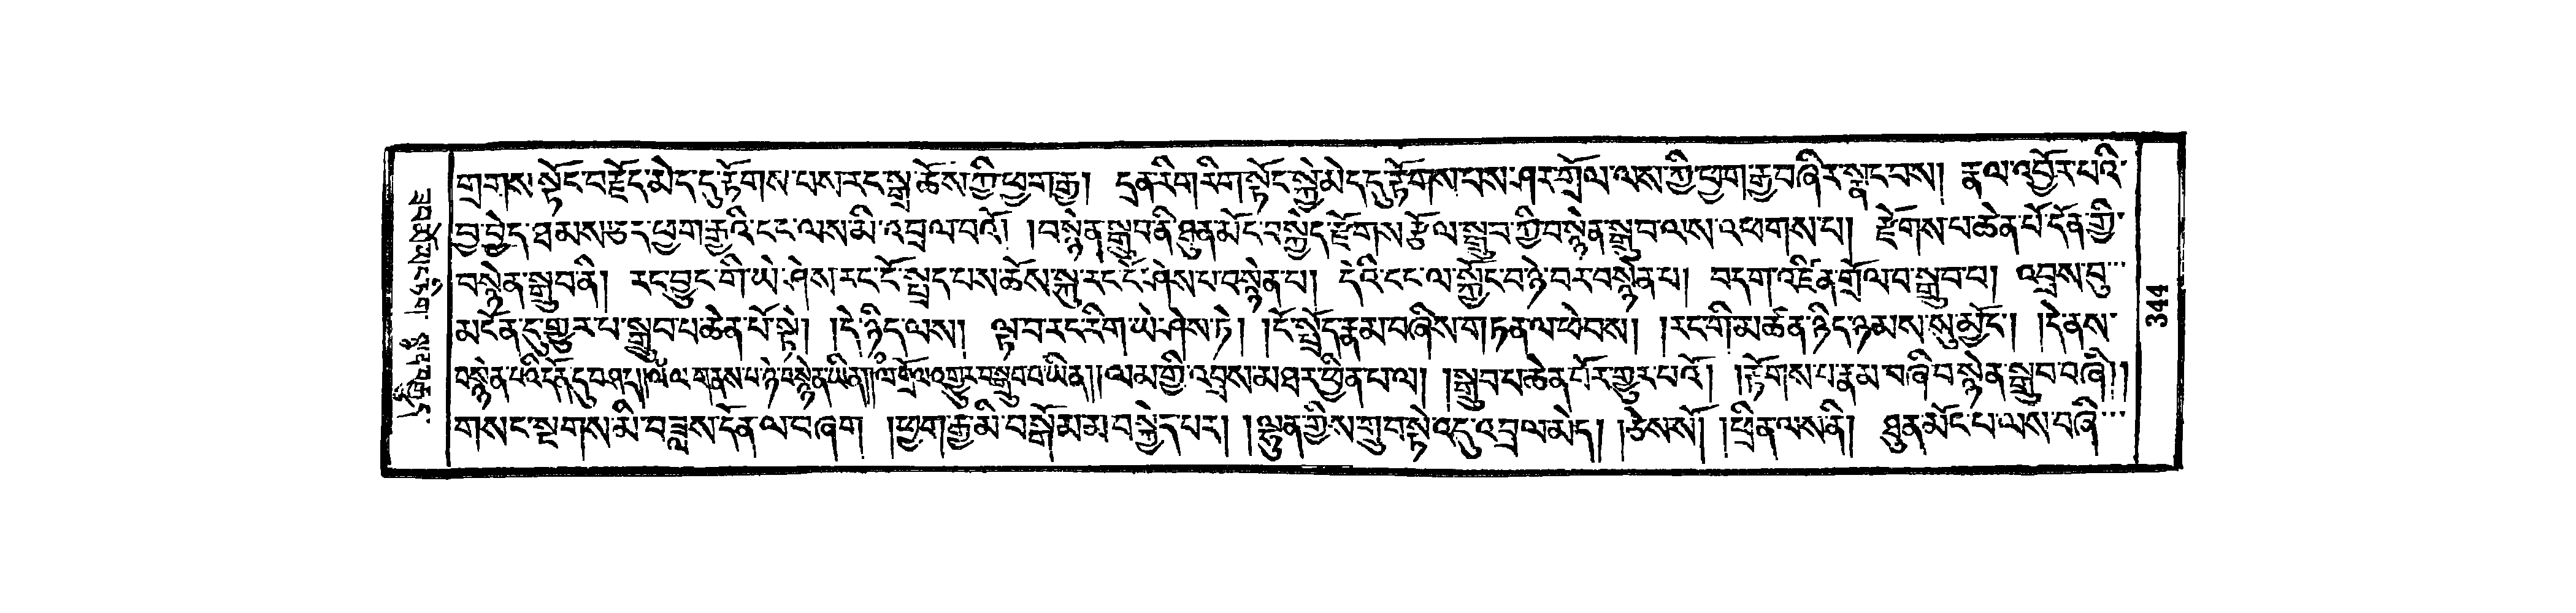 གྲགས་སྟོང་བརྗོད་མེད་དུ་རྟོགས་པས་རང་སྒྲ་ཆོས་ཀྱི་ཕྱག་རྒྱ། དྲན་རིག་རིག་སྟོང་སྐྱེ་མེད་དུ་རྟོགས་པས་ཤར་གྲོལ་ལས་ཀྱི་ཕྱག་རྒྱ་བཞིར་སྣང་བས། རྣལ་འབྱོར་པའི་
བྱ་བྱེད་ཐམས་ཅད་ཕྱག་རྒྱའི་ངང་ལས་མི་འབྲལ་བའོ། །བསྙེན་སྒྲུབ་ནི་ཐུན་མོང་བསྐྱེད་རྫོགས་རྩོལ་སྒྲུབ་ཀྱི་བསྙེན་སྒྲུབ་ལས་འཕགས་པ། རྫོགས་པ་ཆེན་པོ་དོན་གྱི་
བསྙེན་སྒྲུབ་ནི། རང་བྱུང་གི་ཡེ་ཤེས་རང་ངོ་སྤྲད་པས་ཆོས་སྐུ་རང་ངོ་ཤེས་པ་བསྙེན་པ། དེའི་ངང་ལ་སྐྱོང་བ་ཉེ་བར་བསྙེན་པ། བདག་འཛིན་གྲོལ་བ་སྒྲུབ་པ། འབྲས་བུ་
མངོན་དུ་གྱུར་པ་སྒྲུབ་པ་ཆེན་པོ་སྟེ། །དེ་ཉིད་ལས། ལྟ་བ་རང་རིག་ཡེ་ཤེས་ཏེ། །ངོ་སྤྲོད་རྣམ་བཞིས་གཏན་ལ་ཕེབས། །རང་གི་མཚན་ཉིད་ཉམས་སུ་མྱོང་། །དེ་ནས་
བསྙེན་པའི་དོན་དུ་བཤད། །ལ་གནས་པ་ཉེ་བསྙེན་ཡིན། །གྲོལ་འགྱུར་བ་སྒྲུབ་པ་ཡིན། །ལམ་གྱི་འབྲས་མཐར་ཕྱིན་པ་ལ། །སྒྲུབ་པ་ཆེན་པོར་གྱུར་པའོ། །རྟོགས་པ་རྣམ་བཞི་བསྙེན་སྒྲུབ་བཞི། །
གསང་སྔགས་མི་བཟླས་དོན་ལ་བཞག །ཕྱག་རྒྱ་མི་བསྒོམ་མ་བསྐྱེད་པར། །ལྷུན་གྱིས་གྲུབ་སྟེ་འདུ་འབྲལ་མེད། །ཅེས་སོ། །ཕྲིན་ལས་ནི། ཐུན་མོང་པ་ལས་བཞི་
༤༤༣